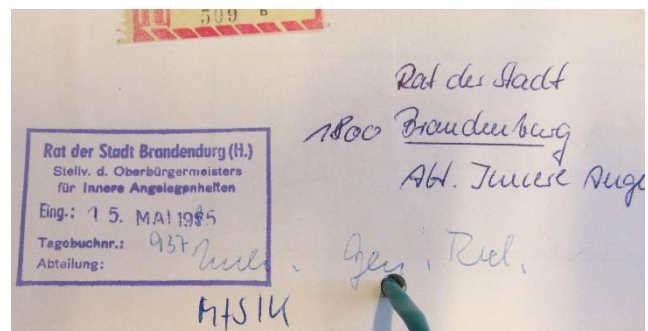 509 B
Rat der Stadt
1800 Brandenburg
Abt. Innere Ange
Rat der Stadt Brandenburg (H.)
Stellv. d. Oberbürgermeisters
für Innere Angelegenheiten
Eing.: 15. MAI 1985
Tagebuchnr.: 937
Abteilung:
Gen. Rud.